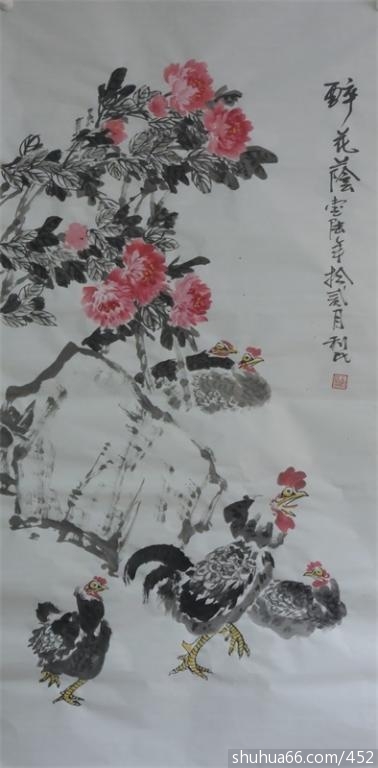 醉花蔭
壹陆年拾贰月利民
shuhua66.com/452